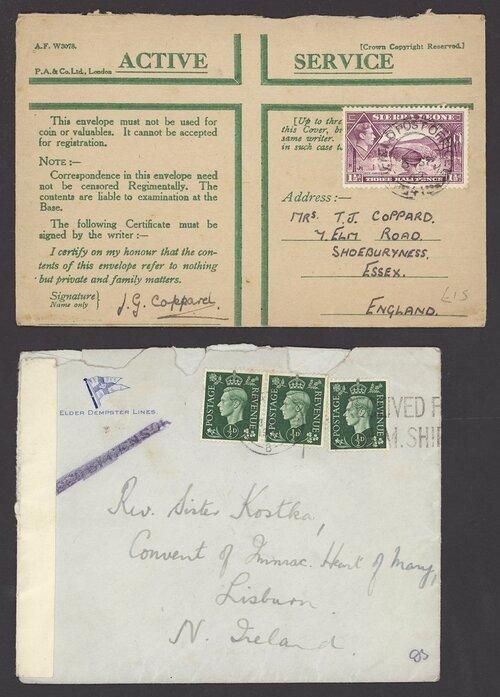 A.F. W3078.
P.A. & Co. Ltd., London
ACTIVE SERVICE
[Crown Copyright Reserved.]
This envelope must not be used for
coin or valuables. It cannot be accepted
for registration.
NOTE :—
Correspondence in this envelope need
not be censored Regimentally. The
contents are liable to examination at the
Base.
The following Certificate must be
signed by the writer :—
I certify on my honour that the con-
tents of this envelope refer to nothing
but private and family matters.
Signature
Name only
J. G. Coppard.
[Up to thre
this Cover, b
same writer.
in such case t
SIERRA LEONE
THREE HALFPENCE
1½d 1½d
Address:—
MRS. T.J. COPPARD.
7, ELM ROAD.
SHOEBURYNESS.
ESSEX.
ENGLAND.
£15
ELDER DEMPSTER LINES.
POSTAGE REVENUE
½D
POSTAGE REVENUE
½D
POSTAGE REVENUE
½D
IVED F
M. SHI
Rev. Sister Kostka,
Convent of Immac. Heart of Mary,
Lisburn.
N. Ireland.